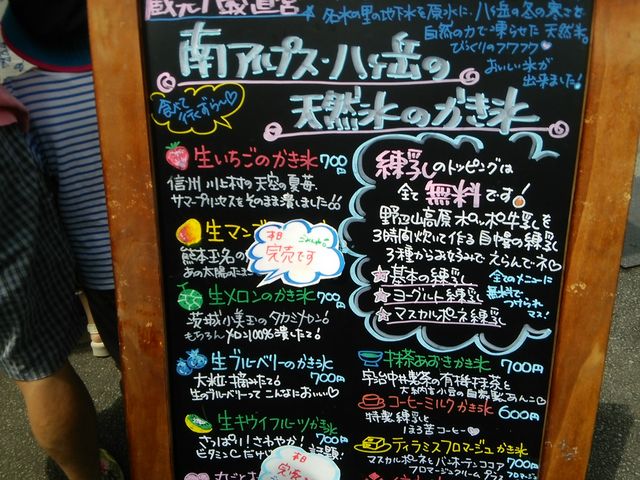 蔵元八義直営
名水の里の地下水を原水に、八ヶ岳の冬の寒さを
自然の力で凍らせた天然氷。
びっくりのフワフワ♡
おいしい氷が
出来ました!
南アルプス・八ヶ岳の
天然氷のかき氷
食べて
生いちごのかき氷 700円
信州 川上村の天空の夏苺、
サマープリンセスをそのまま潰しました!!
生マンゴ
熊本玉名の
あの太陽のたま
本日
完売です
ごめんね
生メロンのかき氷 700円
茨城小美玉のタカミメロン!
もちろんメロン100%潰したて!
生ブルーベリーのかき氷
大粒!摘みたて! 700円
生のブルーベリーって こんなにおいしい♡
生キウイフルーツかき氷
さっぱり!さわやか! 700円
ビタミンCだけ
本日
完売
練乳のトッピングは
全て無料です!
野辺山高原 水ポッポ牛乳を
3時間炊いて作る自慢の練乳
3種からお好みでえらんでネ♡
☆基本の練乳
☆ヨーグルト練乳
☆マスカルポーネ練乳
全てのメニューに
無料で
つけられ
マス!
抹茶あずきかき氷 700円
宇治中井製茶の有機抹茶と
大納言小豆の自家製あんこ♡
コーヒーミルクかき氷 600円
特製練乳と
ほろ苦コーヒー♡
ティラミスフロマージュかき氷
マスカルポーネとバンホーテンココア 700円
フロマージュクリーム